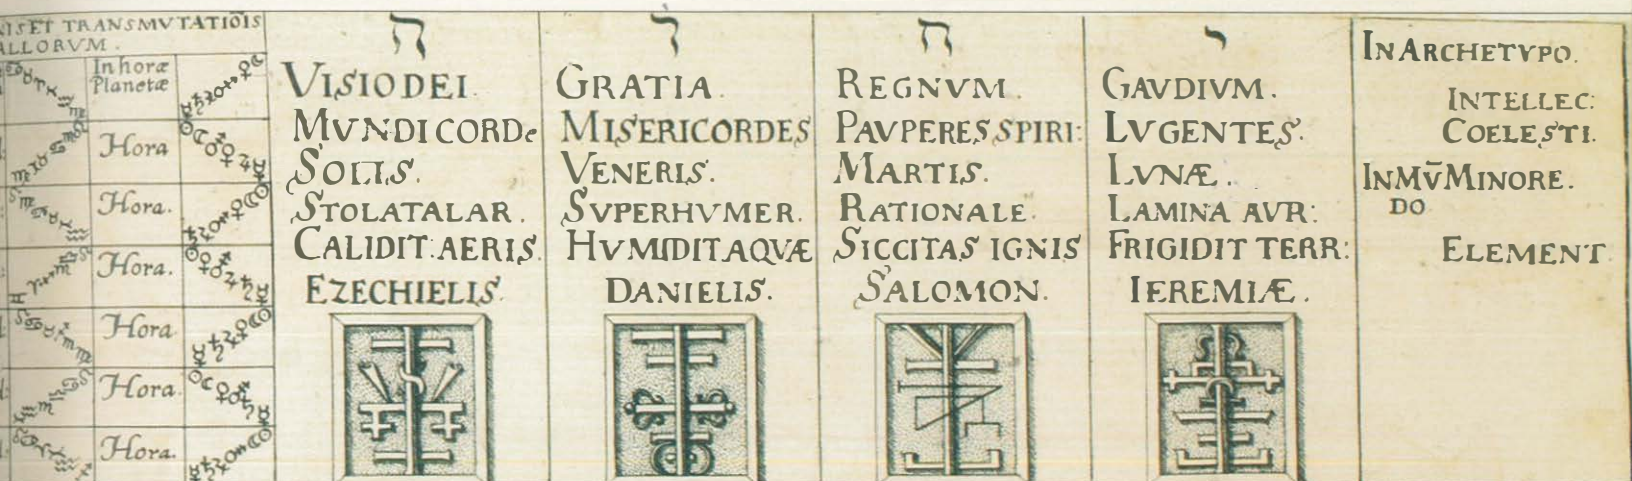 NIS ET TRANSMVTATIŌIS
ALLORVM.
In horæ
Planetæ
Hora
Hora.
Hora.
Hora
Hora
Hora.
ה
VISIO DEI.
MVNDI CORDe
SOLIS.
STOLATALAR.
CALIDIT: AERIS.
EZECHIELIS.
ו
GRATIA.
MISERICORDES
VENERIS.
SVPERHVMER.
HVMIDIT AQVÆ
DANIELIS.
ה
REGNVM.
PAVPERES SPIRI:
MARTIS.
RATIONALE.
SICCITAS IGNIS
SALOMON.
י
GAVDIVM.
LVGENTES.
LVNÆ.
LAMINA AVR:
FRIGIDIT TERR:
IEREMIÆ.
IN ARCHETYPO.
INTELLEC:
COELESTI.
IN MV̄ MINORE.
DO
ELEMENT